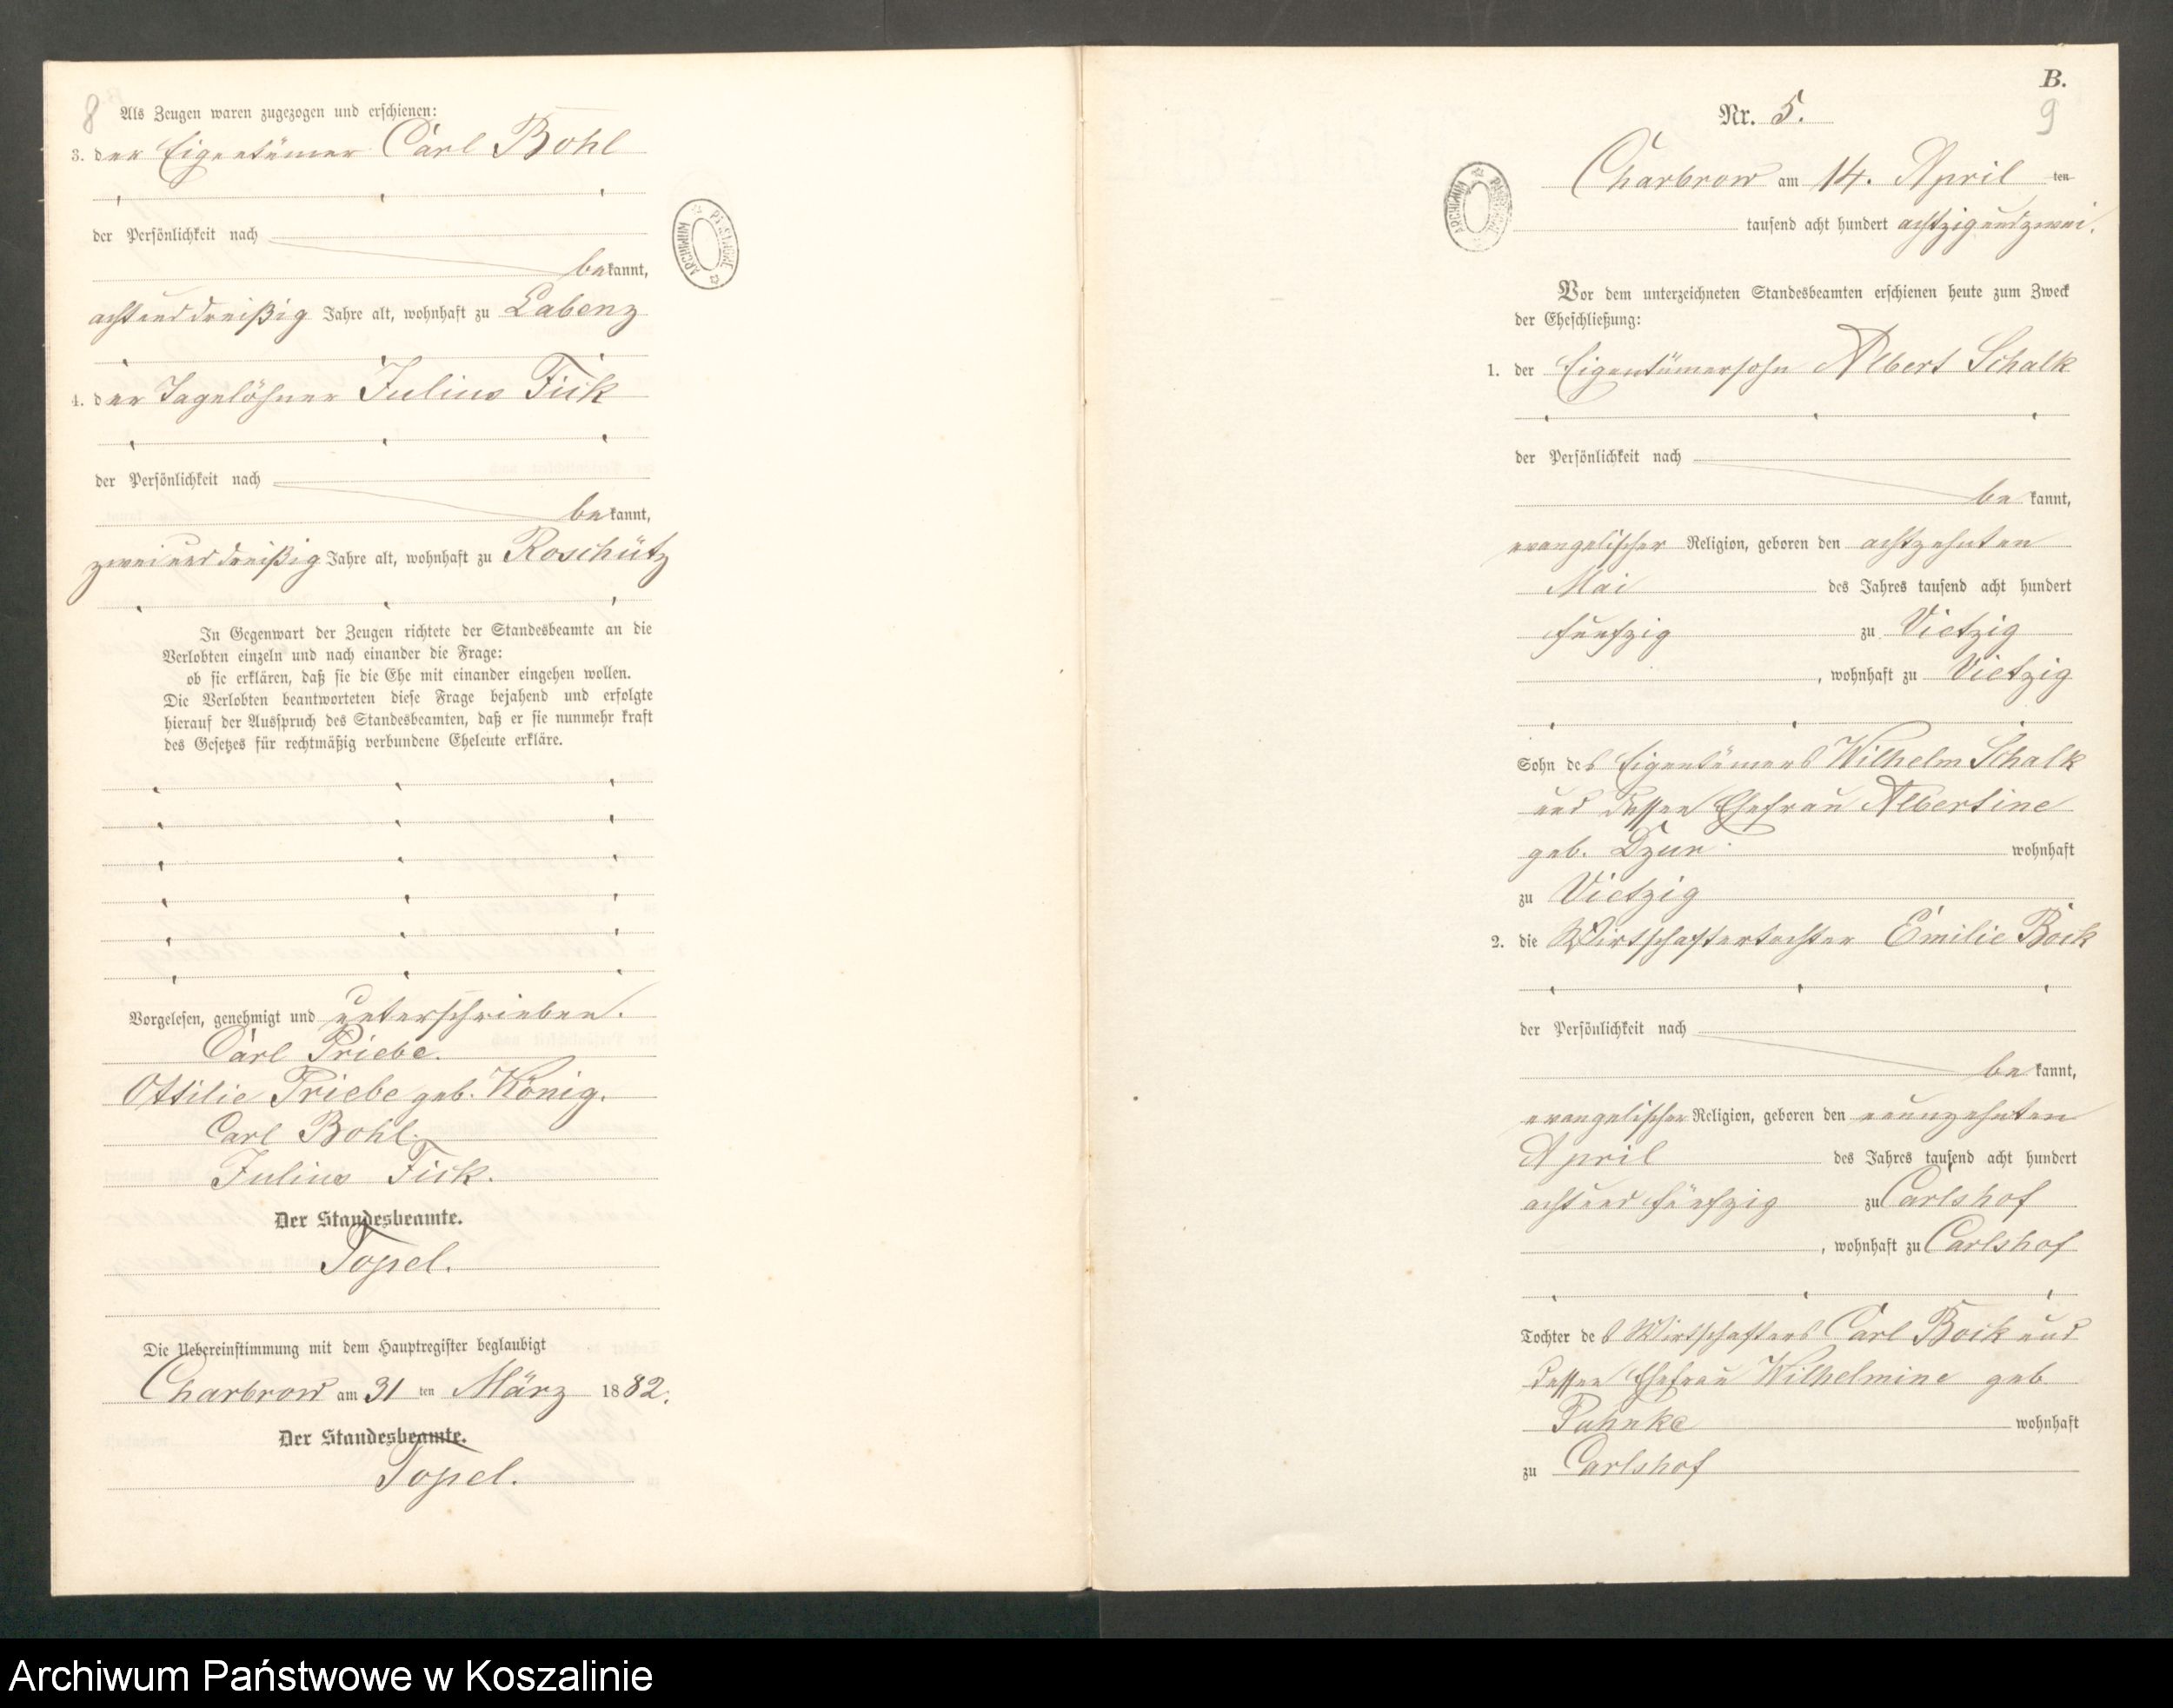 8
Als Zeugen waren zugezogen und erschienen:
3. der Eigentümer Carl Bohl
der Persönlichkeit nach
bekannt,
achtunddreißig Jahre alt, wohnhaft zu Labenz
4. der Tagelöhner Julius Fick
der Persönlichkeit nach
bekannt,
zweiunddreißig Jahre alt, wohnhaft zu Roschütz
In Gegenwart der Zeugen richtete der Standesbeamte an die
Verlobten einzeln und nach einander die Frage:
ob sie erklären, daß sie die Ehe mit einander eingehen wollen.
Die Verlobten beantworteten diese Frage bejahend und erfolgte
hierauf der Ausspruch des Standesbeamten, daß er sie nunmehr kraft
des Gesetzes für rechtmäßig verbundene Eheleute erkläre.
Vorgelesen, genehmigt und unterschrieben.
Carl Priebe.
Ottilie Priebe geb. König.
Carl Bohl.
Julius Fick.
Der Standesbeamte.
Topel.
Die Uebereinstimmung mit dem Hauptregister beglaubigt
Charbrow am 31 ten März 1882.
Der Standesbeamte.
Topel.
ARCHIWUM PAŃSTWOWE
B.
9
Nr. 5.
Charbrow am 14. April ten
tausend acht hundert achtzigundzwei.
ARCHIWUM PAŃSTWOWE
Vor dem unterzeichneten Standesbeamten erschienen heute zum Zweck
der Eheschließung:
1. der Eigentümersohn Albert Schalk
der Persönlichkeit nach
bekannt,
evangelischer Religion, geboren den achtzehnten
Mai des Jahres tausend acht hundert
fünfzig zu Vietzig
, wohnhaft zu Vietzig
Sohn des Eigentümers Wilhelm Schalk
und dessen Ehefrau Albertine
geb. Dzun wohnhaft
zu Vietzig
2. die Wirtschaftertochter Emilie Bock
der Persönlichkeit nach
bekannt,
evangelischer Religion, geboren den neunzehnten
April des Jahres tausend acht hundert
achtund fünfzig zu Carlshof
, wohnhaft zu Carlshof
Tochter des Wirtschafters Carl Bock und
dessen Ehefrau Wilhelmine geb
Pahnke wohnhaft
zu Carlshof
Archiwum Państwowe w Koszalinie